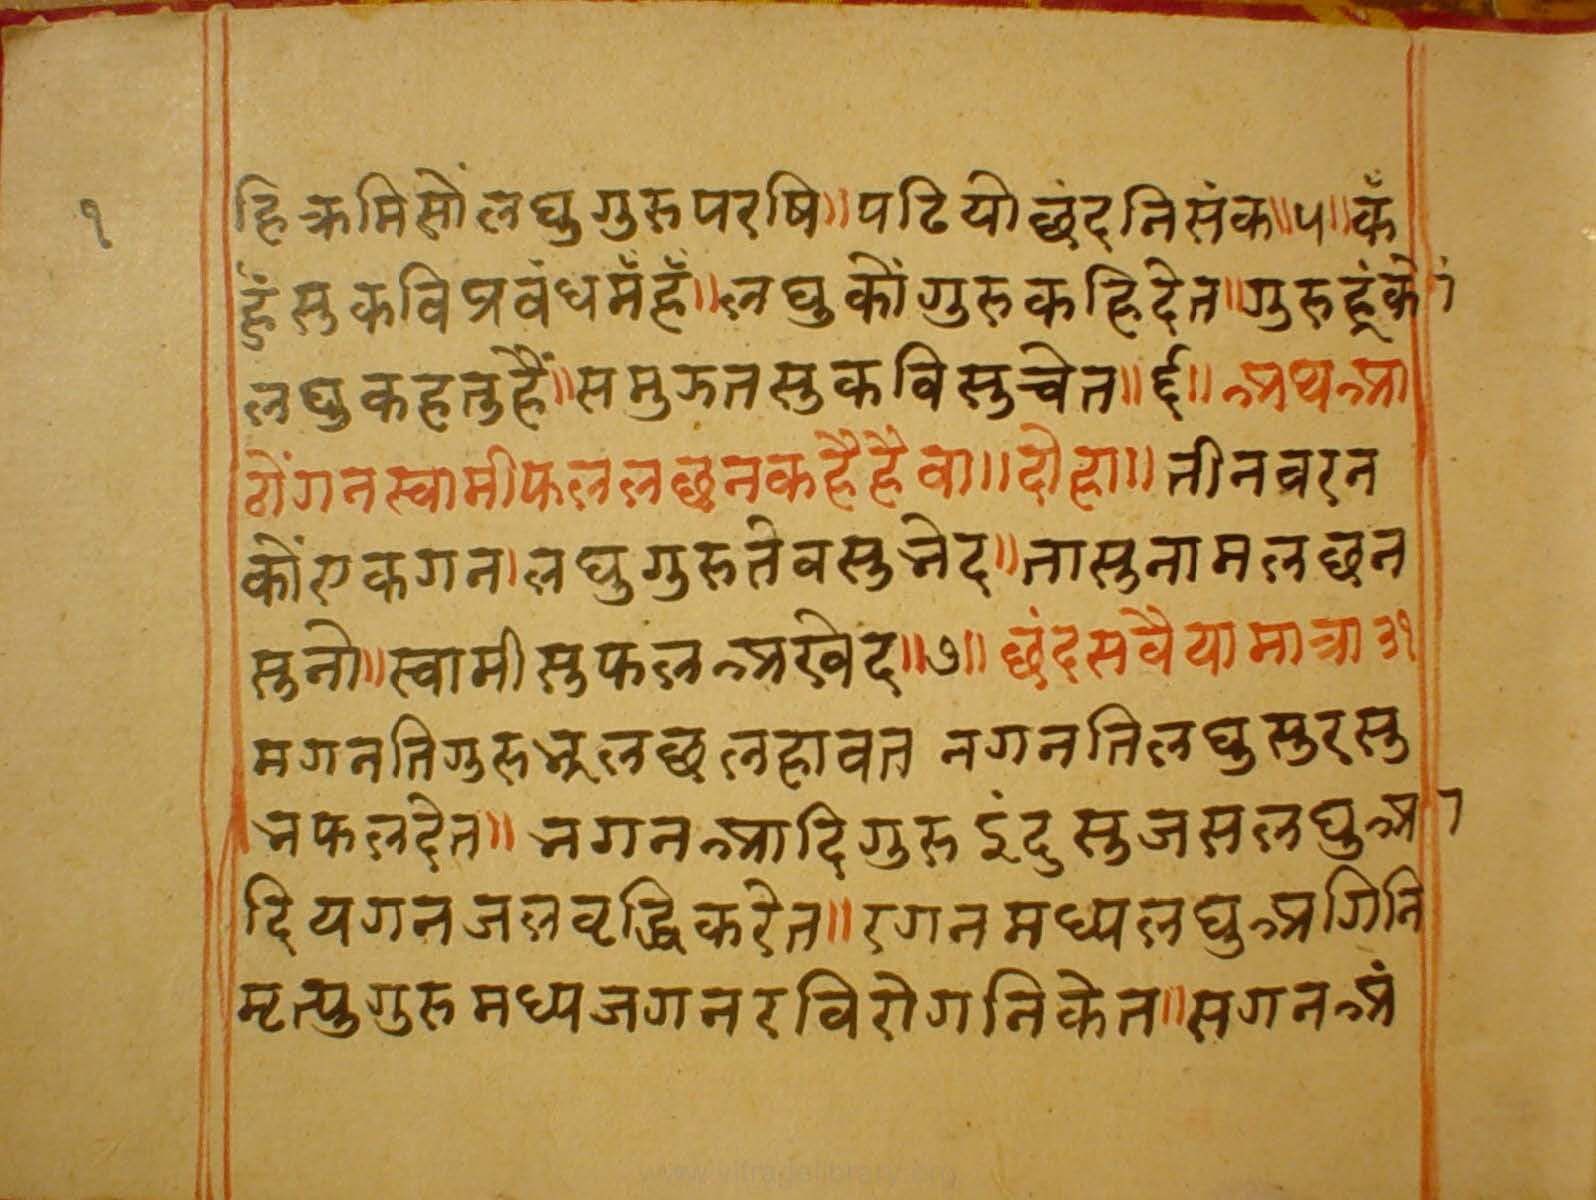 १
हि क्रमि सों लघु गुरु परषि॥ पढियो छंद निसंक॥५॥ कँ
हुँ सु कवि प्रबंध मँहँ॥ लघु कों गुरु कहि देत॥ गुरु हूं कों
लघु कहतु हैं॥ समुझत सु कवि सुचेत॥६॥ अथ आ
ठों गन स्वामी फल लछन कहै है वा॥ दोहा॥ तीन वरन
कों एक गन। लघु गुरु ते वसु भेद॥ तासु नाम लछन
सुनो॥ स्वामी सुफल अखेद॥७॥ छंद सवैया मात्रा ३१
मगन तिगुरु भू लछ लहावत नगन तिलघु सुर सु
भ फल देत॥ भगन आदि गुरु इंदु सुजस लघु आ
दि यगन जल वृद्धि करेत॥ रगन मध्य लघु अगिनि
मृत्यु गुरु मध्य जगन रवि रोग निकेत॥ सगन अं
www.vitragelibrary.org